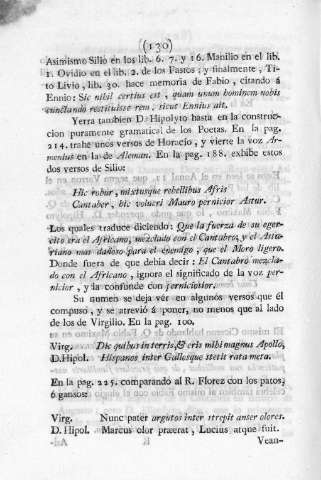 (130)
Asimismo Silio en los lib. 6. 7. y 16. Manilio en el lib.
1. Ovidio en el lib. 2. de los Fastos; y finalmente, Ti-
to Livio, lib. 30. hace memoria de Fabio, citando á
Ennio: Sic nihil certius est, quam unum hominem nobis
cunctando restituisse rem, sicut Ennius ait.
Yerra tambien D. Hipolyto hasta en la construc-
cion puramente gramatical de los Poetas. En la pag.
214. trahe unos versos de Horacio, y vierte la voz Ar-
menius en la de Aleman. En la pag. 188. exhibe estos
dos versos de Silio:
Hic robur, mixtusque rebellibus Afris
Cantaber, hic volucri Mauro pernicior Astur.
Los quales traduce diciendo: Que la fuerza de su eger-
cito era el Africano, mezclado con el Cantabro, y el Astu-
riano mas dañoso para el enemigo, que el Moro ligero.
Donde fuera de que debia decir: El Cantabro mezcla-
do con el Africano, ignora el significado de la voz per-
nicior, y la confunde con perniciosior.
Su numen se deja vér en algunos versos que él
compuso, y se atrevió á poner, no menos que al lado
de los de Virgilio. En la pag. 100.
Virg. Dic quibus in terris, & eris mihi magnus Apollo,
D. Hipol. Hispanos inter Gallosque stetit rata meta.
En la pag. 225. comparando al R. Florez con los patos,
ó gansos:
Virg. Nunc pater argutos inter strepit anser olores.
D. Hipol. Marcus olor præerat, Lucius atque fuit.
Vean-